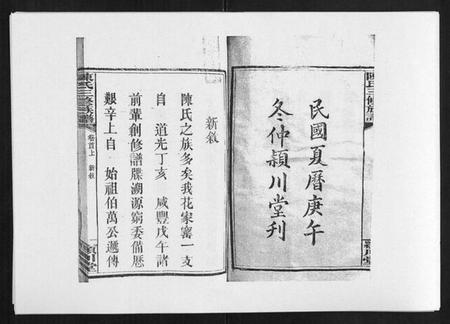 陳氏三修族譜
民國夏曆庚午
冬仲潁川堂刊
新叙
陳氏之族多矣我花家窩一支
自　道光丁亥　咸豐戊午諸
前輩創修譜牒溯源窮委備歷
艱辛上自　始祖伯萬公遞傳
陳氏三修族譜
卷首上
新叙
潁川堂